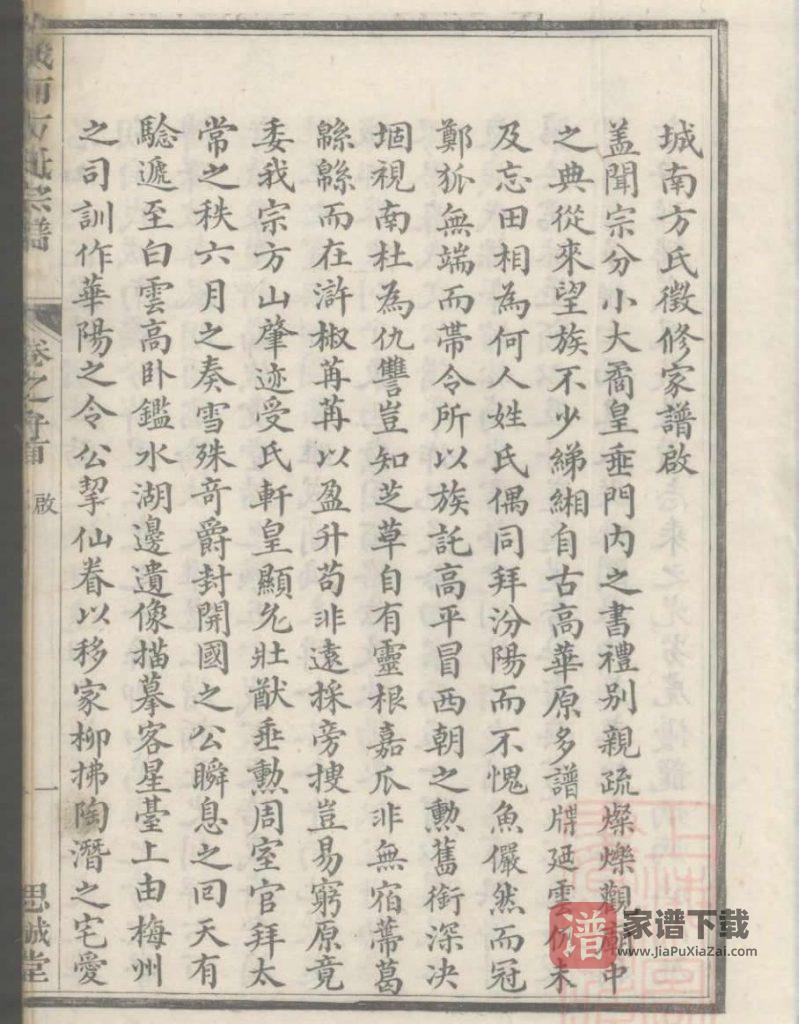 城南方氏徵修家譜啟
盖聞宗分小大矞皇垂門內之書禮別親疏燦爍觀廟中
之典從來望族不少綈緗自古高華原多譜牒廼雲仍未
及忘田相為何人姓氏偶同拜汾陽而不愧魚儼然而冠
鄭狐無端而帶令所以族託高平冒西朝之勲舊銜深決
堌視南杜為仇讐豈知芝草自有靈根嘉瓜非無宿蒂葛
緜緜而在滸椒苒苒以盈升苟非遠採旁搜豈易窮原竟
委我宗方山肇迹受氏軒皇顯允壯猷垂勲周室官拜太
常之秩六月之奏雪殊奇爵封開國之公瞬息之回天有
騐遞至白雲高卧鑑水湖邊遺像描摹客星臺上由梅州
之司訓作華陽之令公挈仙眷以移家柳拂陶潛之宅愛
城南方氏宗譜
卷之首
啟
一
思誠堂
家谱下载
www.JiaPuXiaZai.com
谱